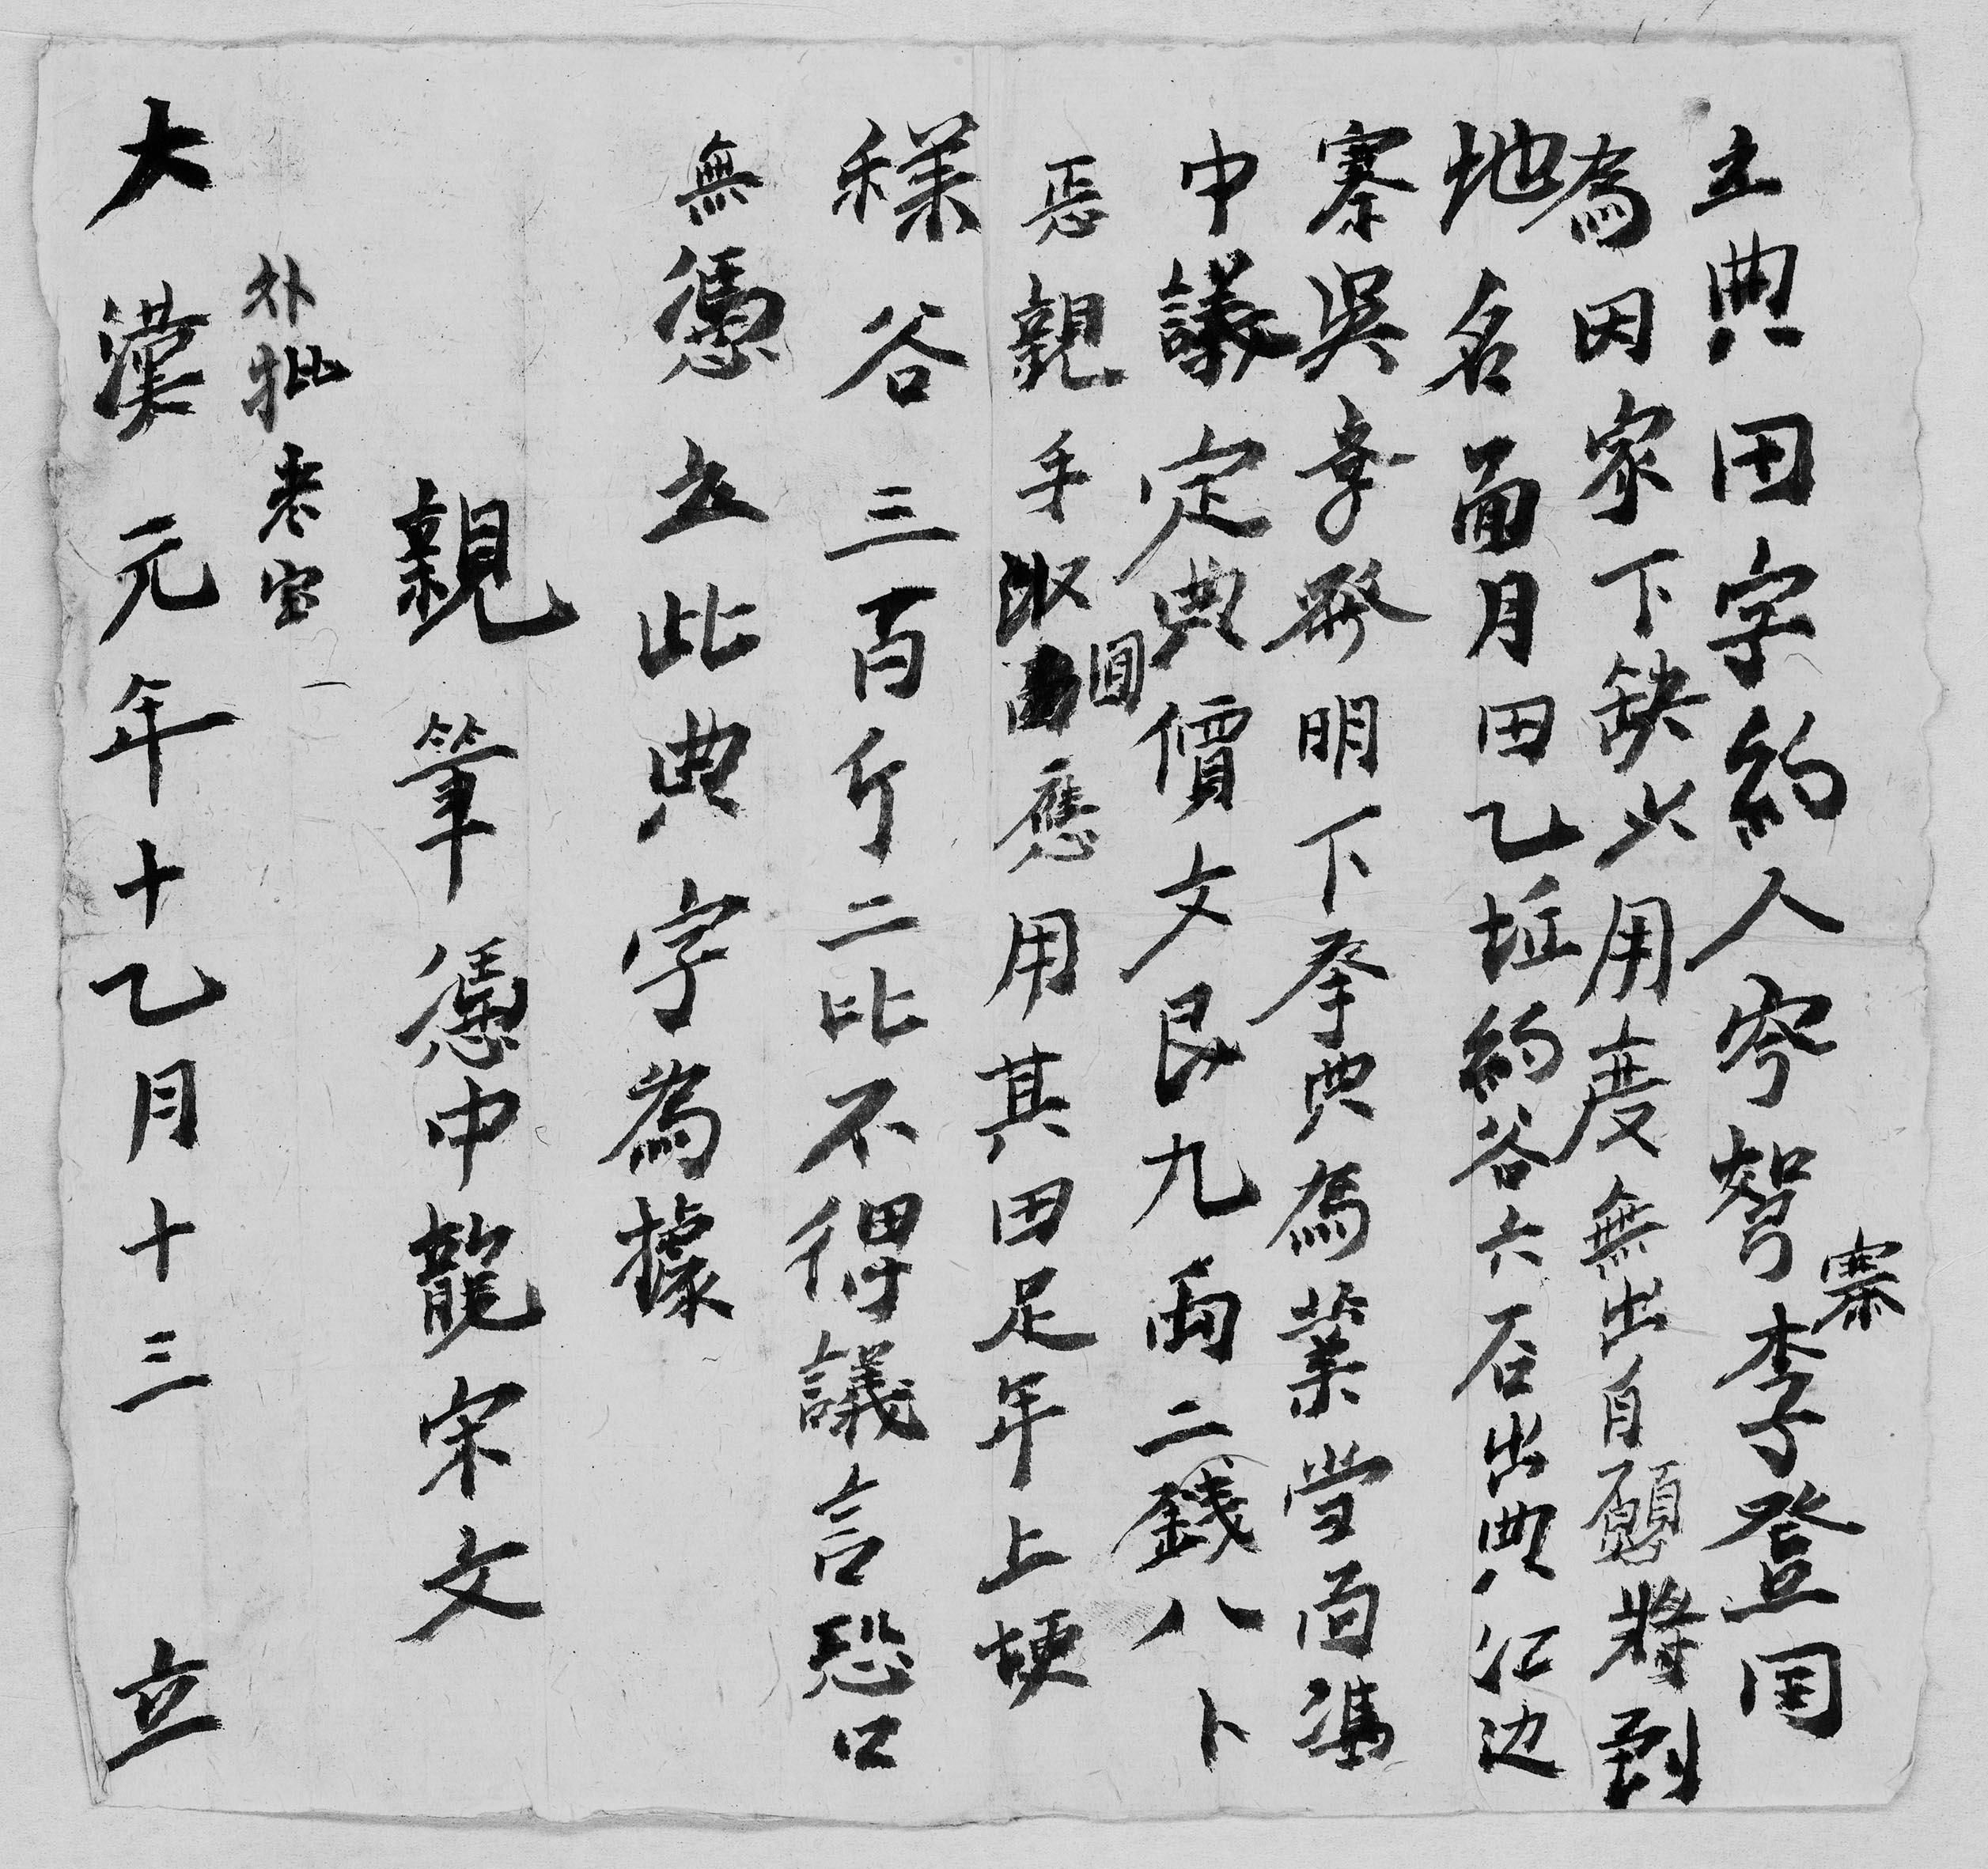 立典田字約人岑孥寨李登国
為因家下缺少用度無出自願將到
地名面月田乙坵約谷六石出典江边
寨吳李發明下承典為業当面憑
中議定典價文艮九両二錢八卜
親手收回應用其田足年上埂
樣谷三百斤二比不得議言恐口
無憑立此典字為據
親筆 憑中龍宋文
外批老官
大漢元年十乙月十三 立